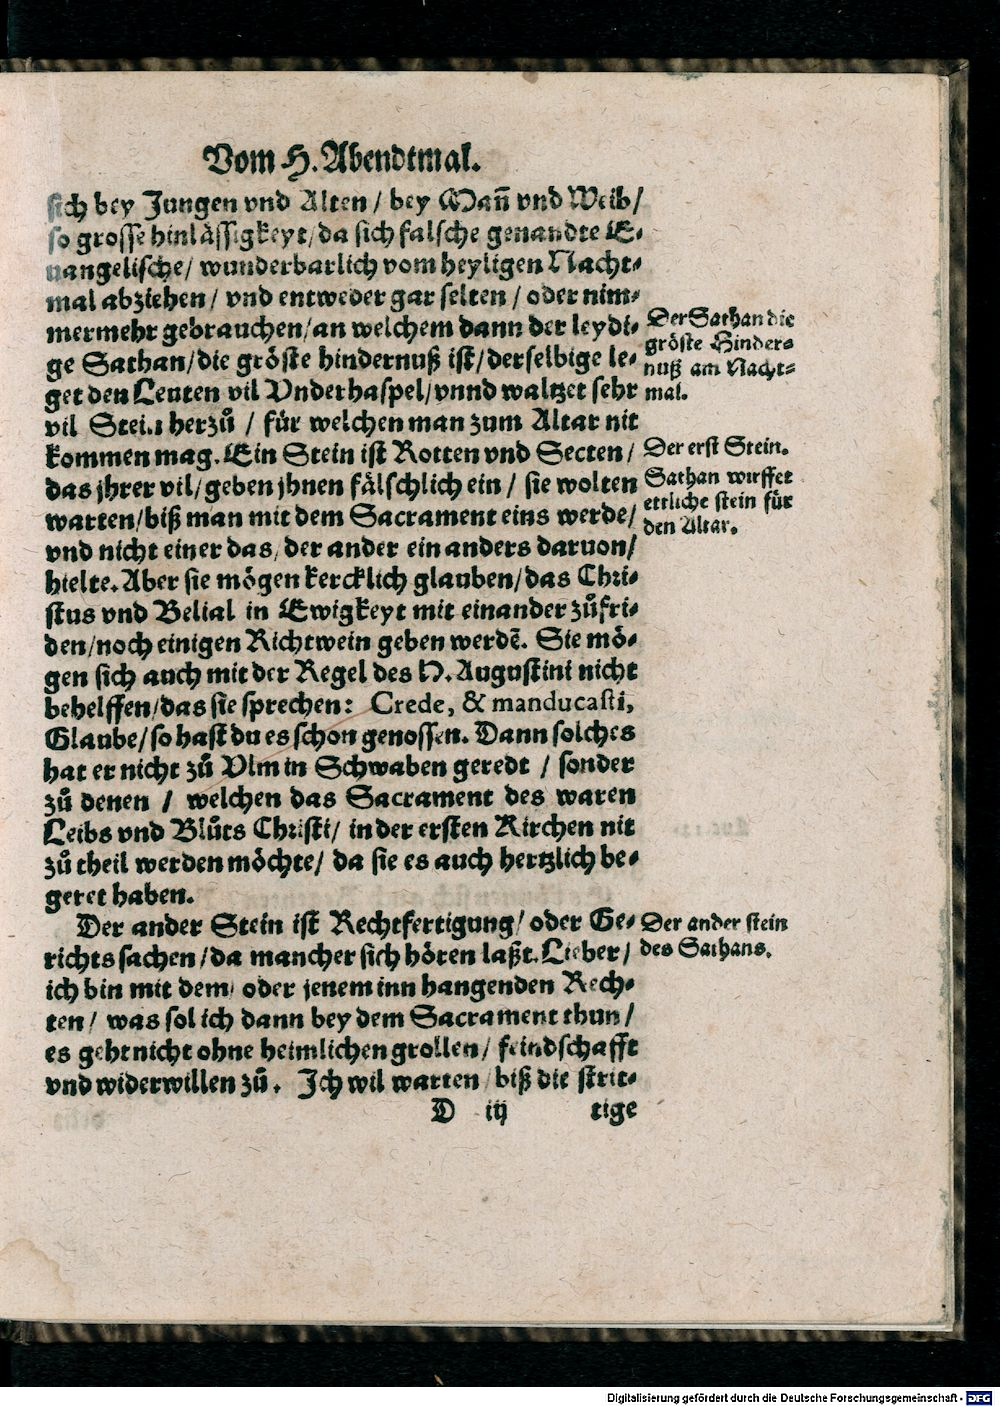 Vom H. Abendtmal.
sich bey Jungen vnd Alten / bey Mañ vnd Weib /
so grosse hinlässigkeyt / da sich falsche genandte E-
uangelische / wunderbarlich vom heyligen Nacht-
mal abziehen / vnd entweder gar selten / oder nim-
mermehr gebrauchen / an welchem dann der leydi-
ge Sathan / die gröste hindernuß ist / derselbige le-
get den Leuten vil Vnderhaspel / vnnd waltzet sehr
vil Stein herzů / für welchen man zum Altar nit
kommen mag. Ein Stein ist Rotten vnd Secten /
das jhrer vil / geben jhnen fälschlich ein / sie wolten
warten / biß man mit dem Sacrament eins werde /
vnd nicht einer das / der ander ein anders daruon /
hielte. Aber sie mögen kercklich glauben / das Chri-
stus vnd Belial in Ewigkeyt mit einander zůfri-
den / noch einigen Richtwein geben werdẽ. Sie mö-
gen sich auch mit der Regel des H. Augustini nicht
behelffen / das sie sprechen: Crede, & manducasti,
Glaube / so hast du es schon genossen. Dann solches
hat er nicht zů Vlm in Schwaben geredt / sonder
zů denen / welchen das Sacrament des waren
Leibs vnd Blůts Christi / in der ersten Kirchen nit
zů theil werden möchte / da sie es auch hertzlich be-
geret haben.
Der ander Stein ist Rechtfertigung / oder Ge-
richts sachen / da mancher sich hören laßt. Lieber /
ich bin mit dem / oder jenem inn hangenden Rech-
ten / was sol ich dann bey dem Sacrament thun /
es geht nicht ohne heimlichen grollen / feindschafft
vnd widerwillen zů. Ich wil warten / biß die strit-
D iij tige
Der Sathan die
gröste Hinder-
nuß am Nacht-
mal.
Der erst Stein.
Sathan wirffet
ettliche stein für
den Altar.
Der ander stein
des Sathans.
Digitalisierung gefördert durch die Deutsche Forschungsgemeinschaft - DFG